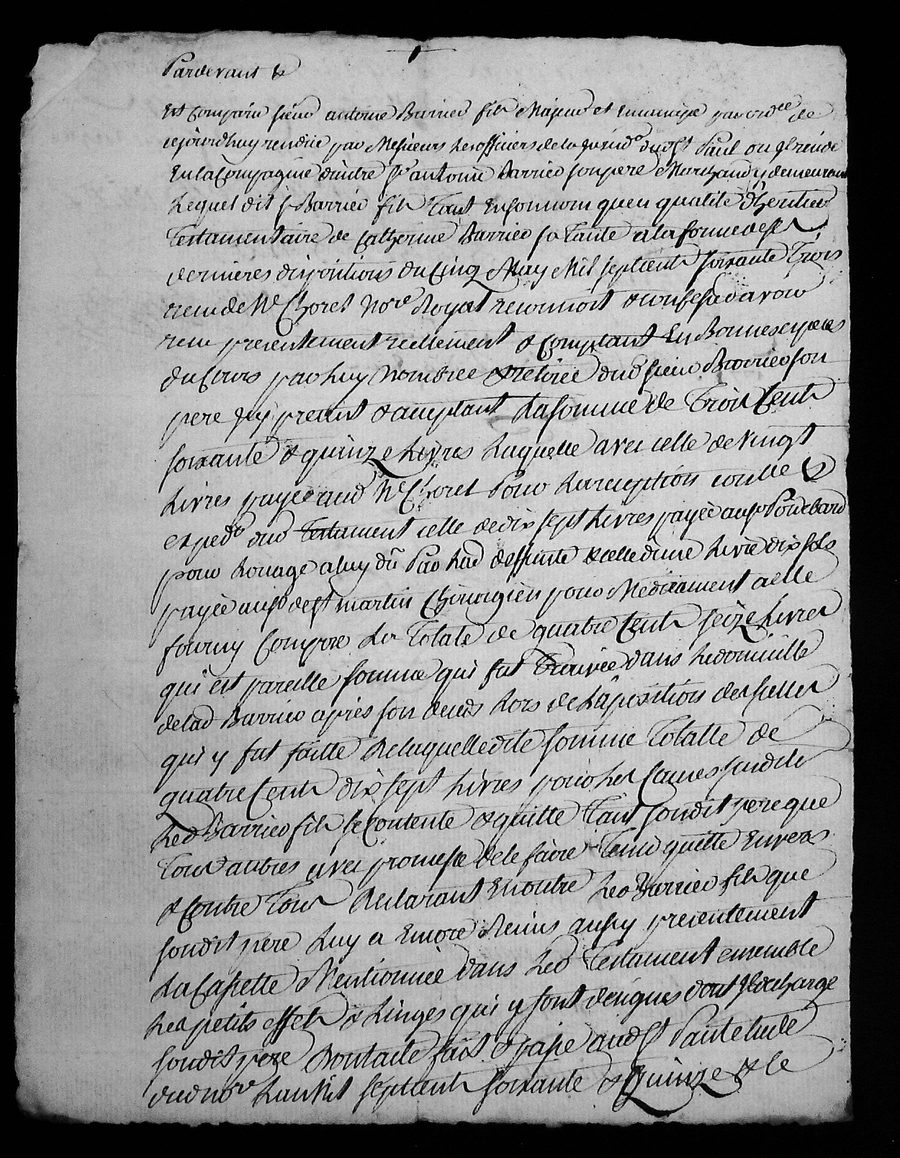 Pardevant &
Est Comparu sieur antoine Barrier fils Majeur et emancipé par ord.ce de
cejourdhuy rendüe par Messieurs les officiers de la jurid.on dud st Paul ou il reside
En la Compagnie dudit sr antoine Barrier son pere Marchand y demeurant
Lequel dit sr Barrier fils Tant En son nom qu'en qualité d'heritier
Testamentaire de Catherine Barrier sa Tante a la forme de ses
dernieres dispositions du Cinq May Mil septcent soixante Trois
receu de Me Choret No.re Royal reconnoit & confesse avoir
receu presentement reellement & Comptant En Bonnes especes
du Cours par Luy Nombrée & retirée dud sieur Barrier son
pere icy present & acceptant La somme de Trois Cents
soixante & quinze Livres Laquelle avec celle de vingt
Livres payée aud Me Choret Pour La reception conlle &
exped.on dud Testament celle de dix sept Livres payée au sr
pour Louage a luy dû Par Lad deffunte & celle d'une Livre dix sols
payée au sr de st martin Chirurgien pour Medicament a elle
fourny Compose La Totale de quatre Cents seize Livres
qui est pareille somme qui fut Trouvée dans Le domicille
de lad Barrier après son deceds Lors de L'aposition des scellés
qui y fut faitte De laquelle dite somme Totalle de
quatre Cents dix sept Livres pour Les Causes susdites
Led Barrier fils se Contente & quitte Tant sondit pere que
Tous autres avec promesse de le faire Tenir quitte Envers
& Contre Tous Declarant En outre Led Barrier fils que
sondit pere Luy a Encore Remis aussy presentement
La Cassette Mentionnée dans Led Testament ensemble
Les petits effets & Linges qui y sont designés dont il decharge
sondit pere Dont acte fait & passé aud st Paul etude
dud no.re L'an Mil septcent soixante & Quinze & le